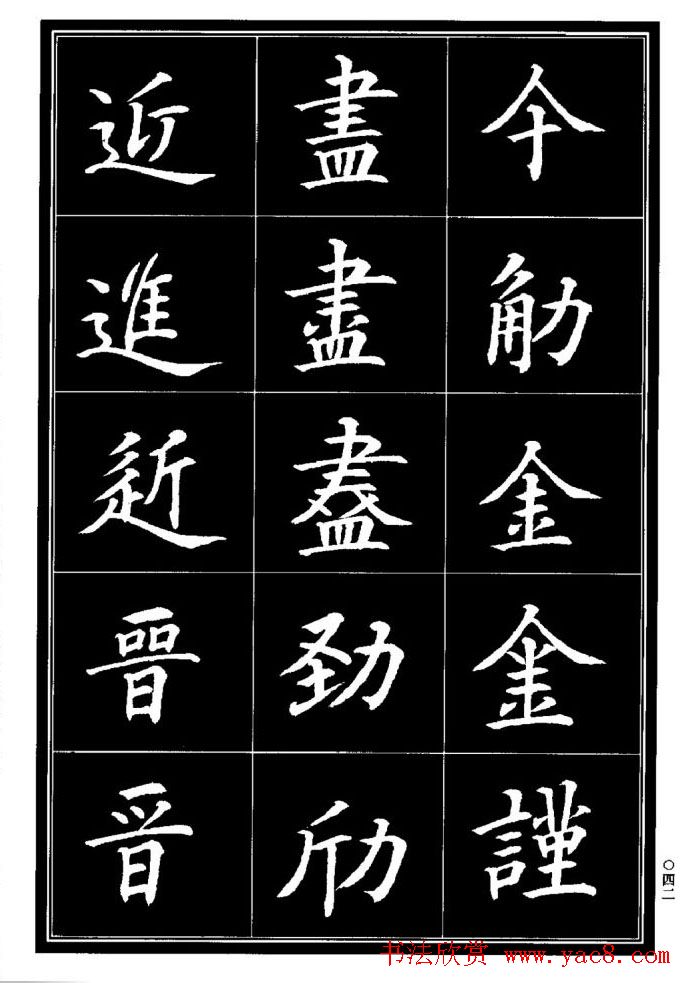 今觔金金謹
盡盡盡勁劤
近進近晉晉
〇四二
书法欣赏 www.yac8.com